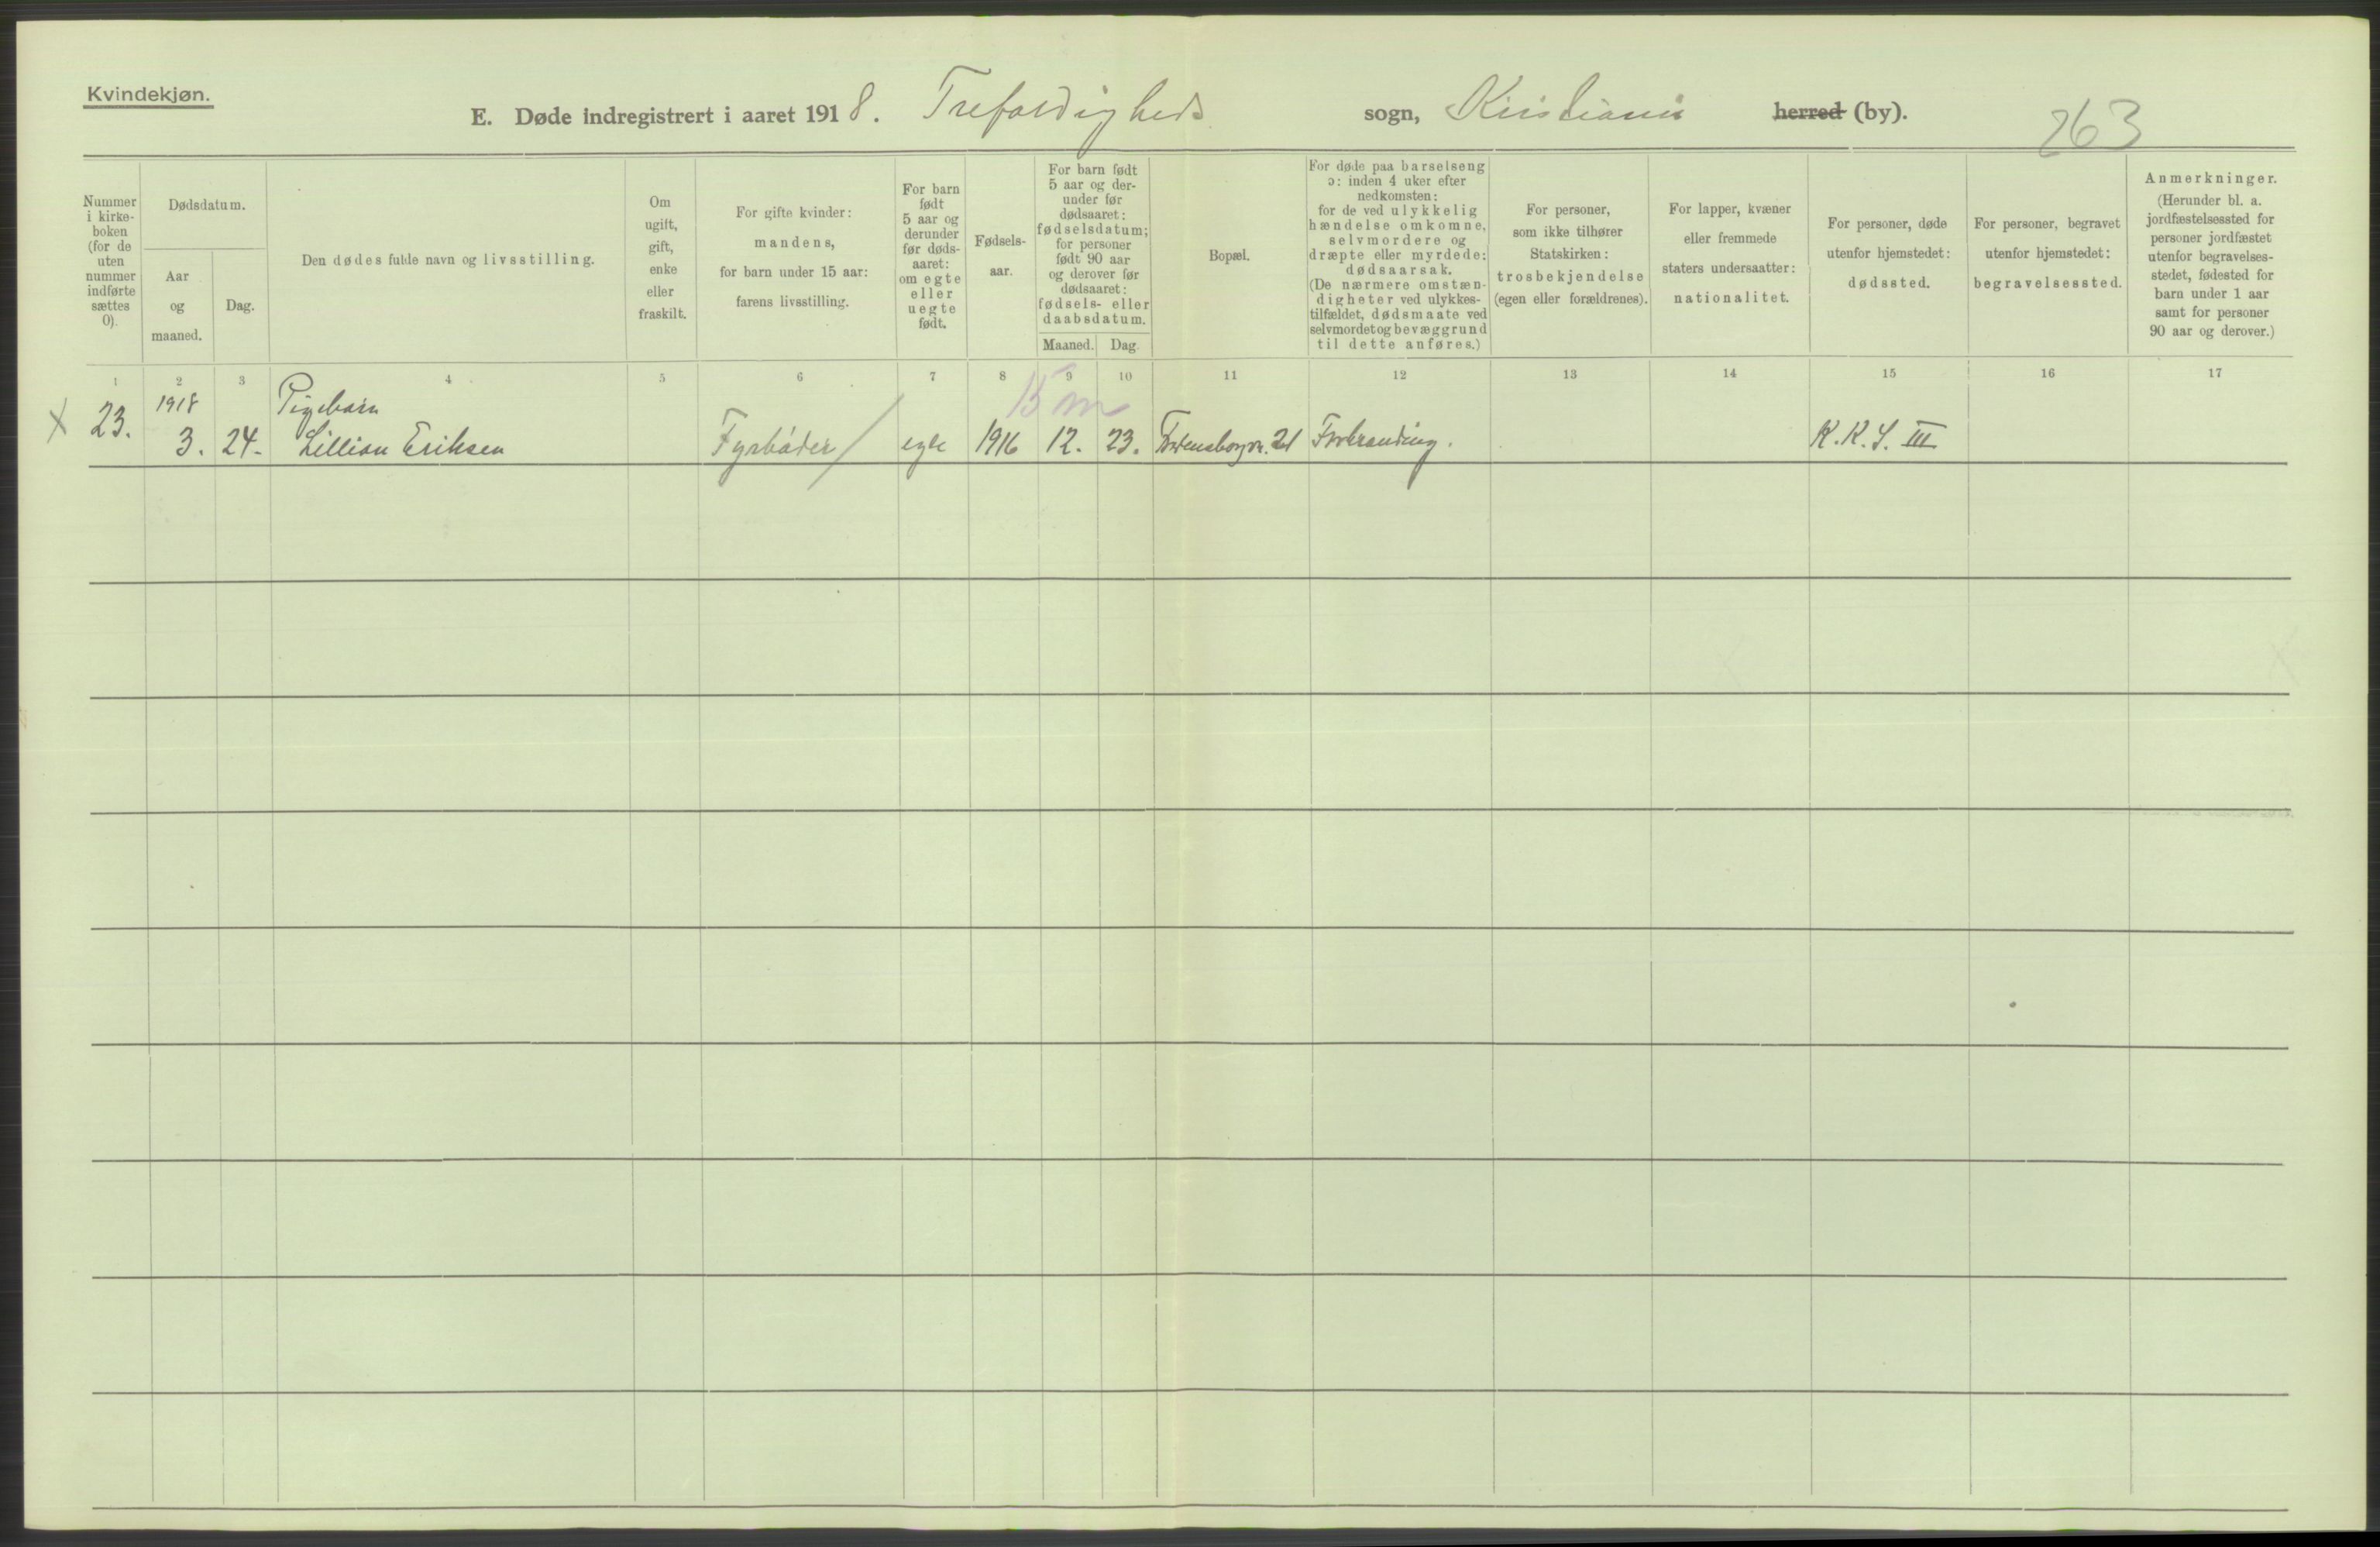 Kvindekjøn.
E. Døde indregistrert i aaret 1918. Trefoldigheds sogn, Kristiania herred (by).
263
Nummer i kirke-boken (for de uten nummer indførte sættes 0).
Dødsdatum.
Aar og maaned.
Dag.
Den dødes fulde navn og livsstilling.
Om ugift, gift, enke eller fraskilt.
For gifte kvinder: mandens, for barn under 15 aar: farens livsstilling.
For barn født 5 aar og derunder før døds-aaret: om egte eller uegte født.
Fødsels-aar.
For barn født 5 aar og der-under før dødsaaret: fødselsdatum; for personer født 90 aar og derover før dødsaaret: fødsels- eller daabsdatum.
Maaned.
Dag.
Bopæl.
For døde paa barselseng ɔ: inden 4 uker efter nedkomsten; for de ved ulykkelig hændelse omkomne, selvmordere og dræpte eller myrdede: dødsaarsak. (De nærmere omstæn-digheter ved ulykkes-tilfældet, dødsmaate ved selvmordet og bevæggrund til dette anføres.)
For personer, som ikke tilhører Statskirken: trosbekjendelse (egen eller forældrenes).
For lapper, kvæner eller fremmede staters undersaatter: nationalitet.
For personer, døde utenfor hjemstedet: dødssted.
For personer, begravet utenfor hjemstedet: begravelsessted.
Anmerkninger. (Herunder bl. a. jordfæstelsessted for personer jordfæstet utenfor begravelses-stedet, fødested for barn under 1 aar samt for personer 90 aar og derover.)
1 2 3 4 5 6 7 8 9 10 11 12 13 14 15 16 17
15 m
1918 Pigebarn
X 23. 3. 24. Lillian Eriksen Fyrbøder / egte 1916 12. 23. 21 Forbrænding. K.K.S. III